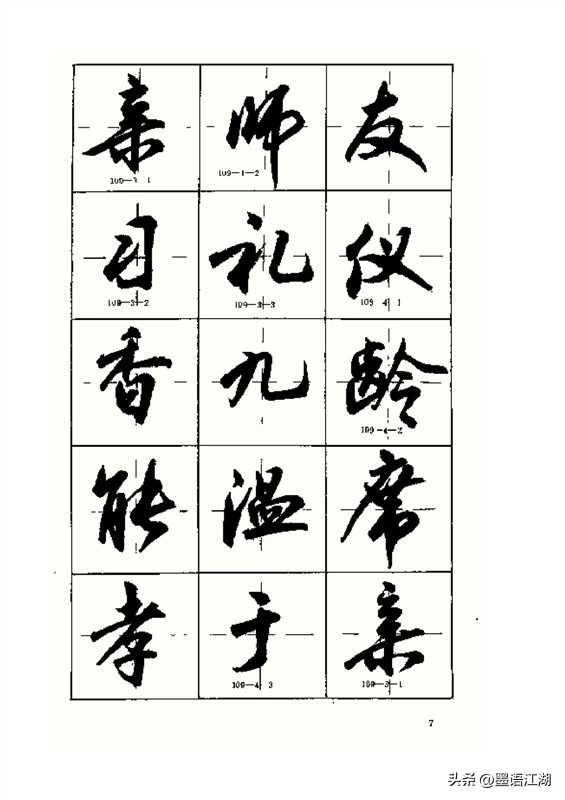 亲师友
109—3—1 109—1—2
习礼仪
109—3—2 109—3—3 109 4 1
香九龄
109—4—2
能温席
孝于亲
109—4 3 109—3—1
7
头条 @墨语江湖